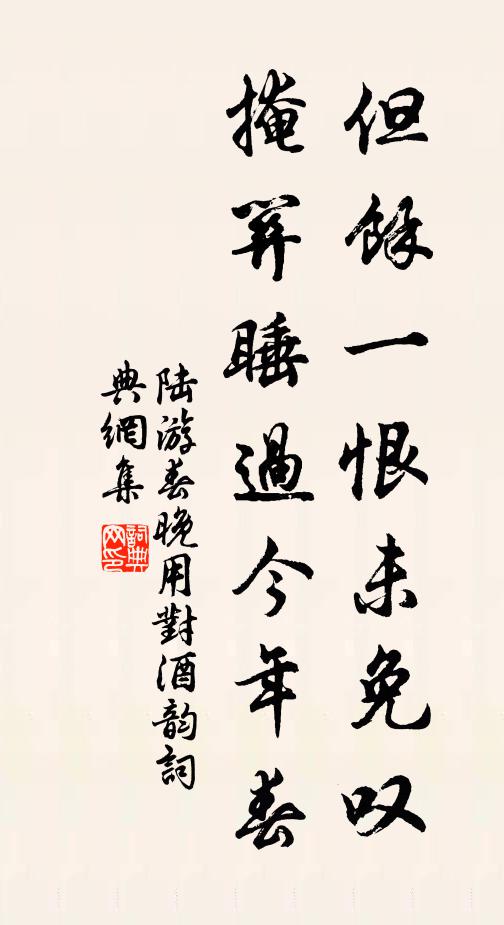 但餘一恨未免叹
掩屏睡過今年春
陆游春晚用對酒韵詞
典網集
詞典網印